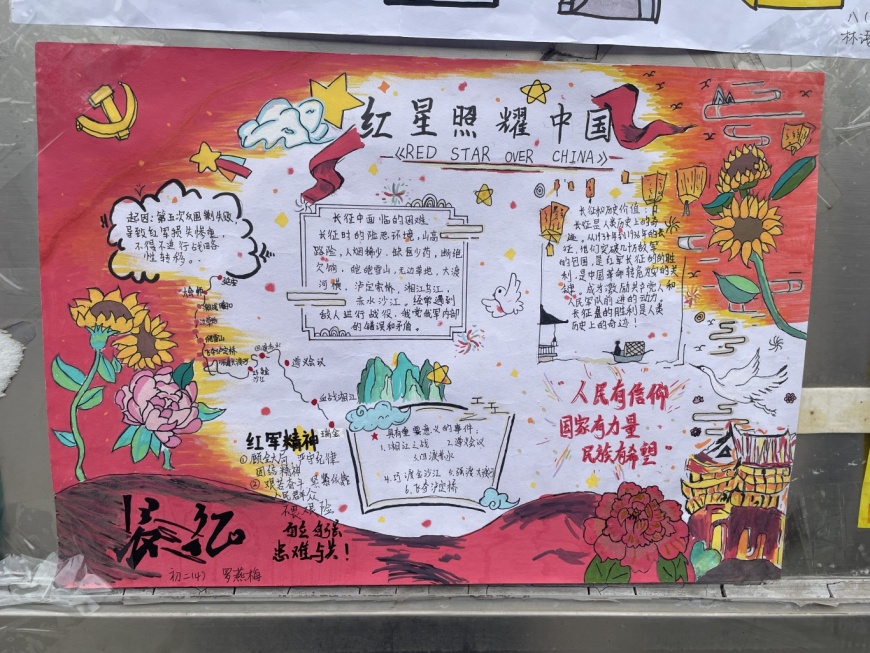 八(
林语
红星照耀中国
《RED STAR OVER CHINA》
起因：第五次反围剿失败，
导致红军损失惨重，
不得不进行战略
性转移。
长征中面临的困难
长征时的险恶环境，山高
路险，人烟稀少，缺医少药，断炮
欠饷，爬雪山，无边草地，大渡
河横，泸定索桥，湘江乌江，
赤水沙江，经常遇到
敌人进行战役，我党我军内部
的错误和矛盾。
长征和历史价值：
长征是人类历史上的奇
迹。从1934年到1936年的长
征，他们突破几百敌军
的包围，是红军长征的的胜
利，是中国革命转危为安的关
键。成为激励共产党人和
人民军队前进的动力，
长征最的胜利是人类
历史上的奇迹！
延安
会师
腊子口
雪山
飞夺泸定桥
遵义会议
血战湘江
瑞金
红军精神
①顾全大局，严守纪律
团结精神
②艰苦奋斗 紧紧依靠
人民群众
不畏艰险
自立自强
患难与共！
具有重要意义的事件：
1.湘江之战 2.遵义会议
3.四渡赤水
4.巧渡金沙江 5.强渡大渡河
6.飞夺泸定桥
“人民有信仰
国家有力量
民族有希望”
长征
初二(4) 罗燕梅